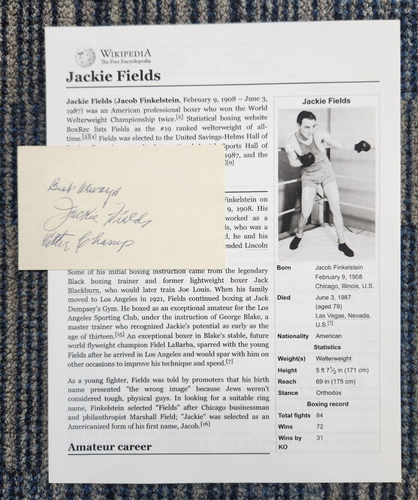 WIKIPEDIA
The Free Encyclopedia
Jackie Fields
Jackie Fields (Jacob Finkelstein, February 9, 1908 – June 3,
1987) was an American professional boxer who won the World
Welterweight Championship twice.[2] Statistical boxing website
BoxRec lists Fields as the #19 ranked welterweight of all-
time.[3][4] Fields was elected to the United Savings-Helms Hall of
Sports Hall of
1987, and the
][9]
Finkelstein on
9, 1908. His
worked as a
ds, who was a
d, he and his
nded Lincoln
Best Always
Jackie Fields
Welter Champ
Some of his initial boxing instruction came from the legendary
Black boxing trainer and former lightweight boxer Jack
Blackburn, who would later train Joe Louis. When his family
moved to Los Angeles in 1921, Fields continued boxing at Jack
Dempsey's Gym. He boxed as an exceptional amateur for the Los
Angeles Sporting Club, under the instruction of George Blake, a
master trainer who recognized Jackie's potential as early as the
age of thirteen.[15] An exceptional boxer in Blake's stable, future
world flyweight champion Fidel LaBarba, sparred with the young
Fields after he arrived in Los Angeles and would spar with him on
other occasions to improve his technique and speed.[7]
As a young fighter, Fields was told by promoters that his birth
name presented "the wrong image" because Jews weren't
considered tough, physical guys. In looking for a suitable ring
name, Finkelstein selected "Fields" after Chicago businessman
and philanthropist Marshall Field; "Jackie" was selected as an
Americanized form of his first name, Jacob.[16]
Amateur career
Jackie Fields
Born Jacob Finkelstein
February 9, 1908
Chicago, Illinois, U.S.
Died June 3, 1987
(aged 79)
Las Vegas, Nevada,
U.S.[1]
Nationality American
Statistics
Weight(s) Welterweight
Height 5 ft 7½ in (171 cm)
Reach 69 in (175 cm)
Stance Orthodox
Boxing record
Total fights 84
Wins 72
Wins by 31
KO